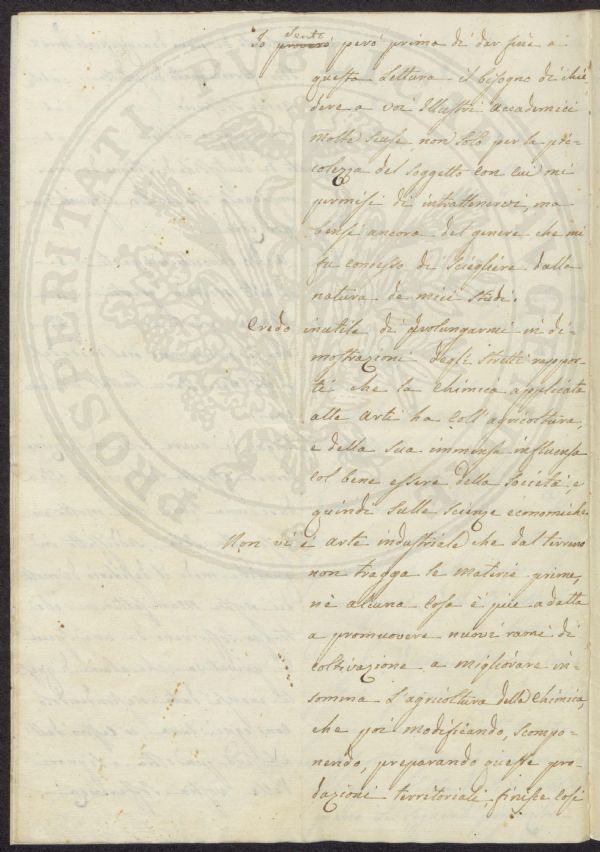 sento
Io proverò però prima di dar fine a
questa Lettura il bisogno di chie
dere a voi Illustri Accademici
molte scuse non solo per la pic-
colezza del soggetto con cui mi
permisi di intrattenervi, ma
bensì ancora del genere che mi
fu concesso di sciegliere dalla
natura de miei studi.
Credo inutile di prolungarmi in di-
mostrazioni degli stretti rappor-
ti che la Chimica applicata
alle arti ha coll'agricoltura,
e della sua immensa influenza
col bene essere della Società, e
quindi sulle scienze economiche.
Non vi è arte industriale che dal terreno
non tragga le materie prime,
nè alcuna cosa è più adatta
a promuovere nuovi rami di
coltivazione a migliorare in-
somma l'agricoltura della Chimica,
che poi modificando, scompo-
nendo, preparando queste pro-
duzioni territoriali, finisce così
PROSPERITATI PUB